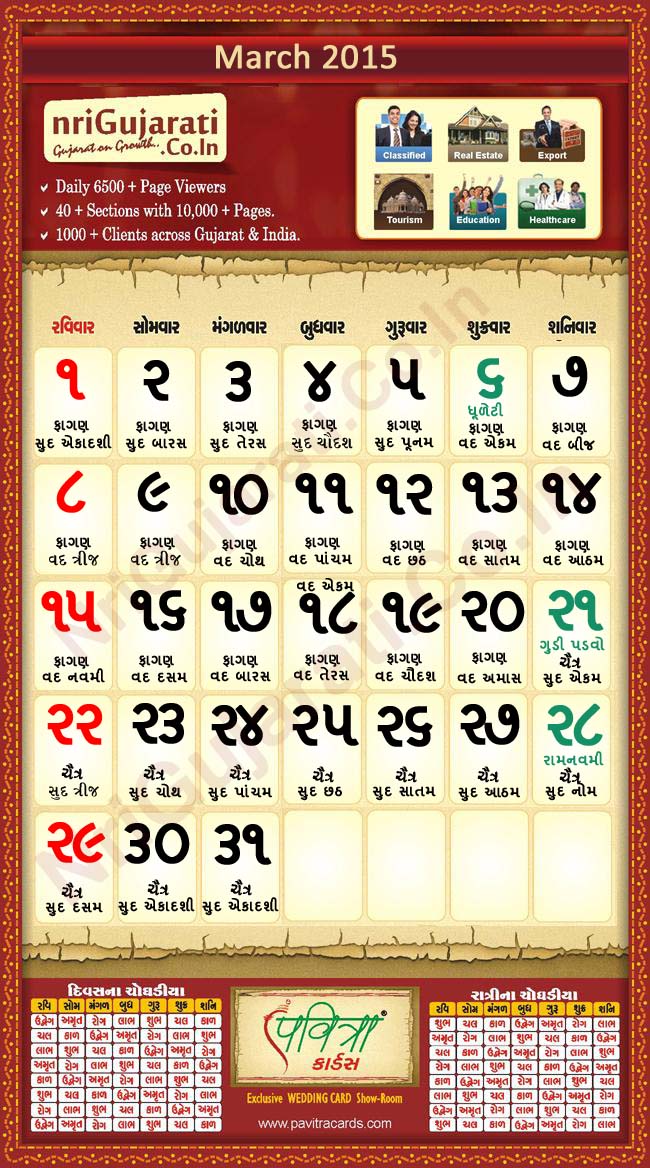 March 2015
nriGujarati
Gujarat on Growth..
.Co.In
Daily 6500 + Page Viewers
40 + Sections with 10,000 + Pages.
1000 + Clients across Gujarat & India.
Classified Real Estate Export
Tourism Education Healthcare
રવિવાર સોમવાર મંગળવાર બુધવાર ગુરૂવાર શુક્રવાર શનિવાર
૧ ૨ ૩ ૪ ૫ ૬ ૭
ધૂળેટી
ફાગણ ફાગણ ફાગણ ફાગણ ફાગણ ફાગણ ફાગણ
સુદ એકાદશી સુદ બારસ સુદ તેરસ સુદ ચૌદશ સુદ પૂનમ વદ એકમ વદ બીજ
૮ ૯ ૧૦ ૧૧ ૧૨ ૧૩ ૧૪
ફાગણ ફાગણ ફાગણ ફાગણ ફાગણ ફાગણ ફાગણ
વદ ત્રીજ વદ ત્રીજ વદ ચોથ વદ પાંચમ વદ છઠ વદ સાતમ વદ આઠમ
વદ એકમ
૧૫ ૧૬ ૧૭ ૧૮ ૧૯ ૨૦ ૨૧
ગુડી પડવો
ફાગણ ફાગણ ફાગણ ફાગણ ફાગણ ફાગણ ચૈત્ર
વદ નવમી વદ દસમ વદ બારસ વદ તેરસ વદ ચૌદશ વદ અમાસ સુદ એકમ
૨૨ ૨૩ ૨૪ ૨૫ ૨૬ ૨૭ ૨૮
રામનવમી
ચૈત્ર ચૈત્ર ચૈત્ર ચૈત્ર ચૈત્ર ચૈત્ર ચૈત્ર
સુદ ત્રીજ સુદ ચોથ સુદ પાંચમ સુદ છઠ સુદ સાતમ સુદ આઠમ સુદ નોમ
૨૯ ૩૦ ૩૧
ચૈત્ર ચૈત્ર ચૈત્ર
સુદ દસમ સુદ એકાદશી સુદ એકાદશી
દિવસના ચોઘડીયા
રવિ સોમ મંગળ બુધ ગુરૂ શુક્ર શનિ
ઉદ્વેગ અમૃત રોગ લાભ શુભ ચલ કાળ
ચલ કાળ ઉદ્વેગ અમૃત રોગ લાભ શુભ
લાભ શુભ ચલ કાળ ઉદ્વેગ અમૃત રોગ
અમૃત રોગ લાભ શુભ ચલ કાળ ઉદ્વેગ
કાળ ઉદ્વેગ અમૃત રોગ લાભ શુભ ચલ
શુભ ચલ કાળ ઉદ્વેગ અમૃત રોગ લાભ
રોગ લાભ શુભ ચલ કાળ ઉદ્વેગ અમૃત
ઉદ્વેગ અમૃત રોગ લાભ શુભ ચલ કાળ
પવિત્રા
કાર્ડસ
Exclusive WEDDING CARD Show-Room
www.pavitracards.com
રાત્રીના ચોઘડીયા
રવિ સોમ મંગળ બુધ ગુરૂ શુક્ર શનિ
શુભ ચલ કાળ ઉદ્વેગ અમૃત રોગ લાભ
અમૃત રોગ લાભ શુભ ચલ કાળ ઉદ્વેગ
ચલ કાળ ઉદ્વેગ અમૃત રોગ લાભ શુભ
રોગ લાભ શુભ ચલ કાળ ઉદ્વેગ અમૃત
કાળ ઉદ્વેગ અમૃત રોગ લાભ શુભ ચલ
લાભ શુભ ચલ કાળ ઉદ્વેગ અમૃત રોગ
ઉદ્વેગ અમૃત રોગ લાભ શુભ ચલ કાળ
શુભ ચલ કાળ ઉદ્વેગ અમૃત રોગ લાભ
NriGujarati.Co.In
NriGujarati.Co.In
NriGujarati.Co.In